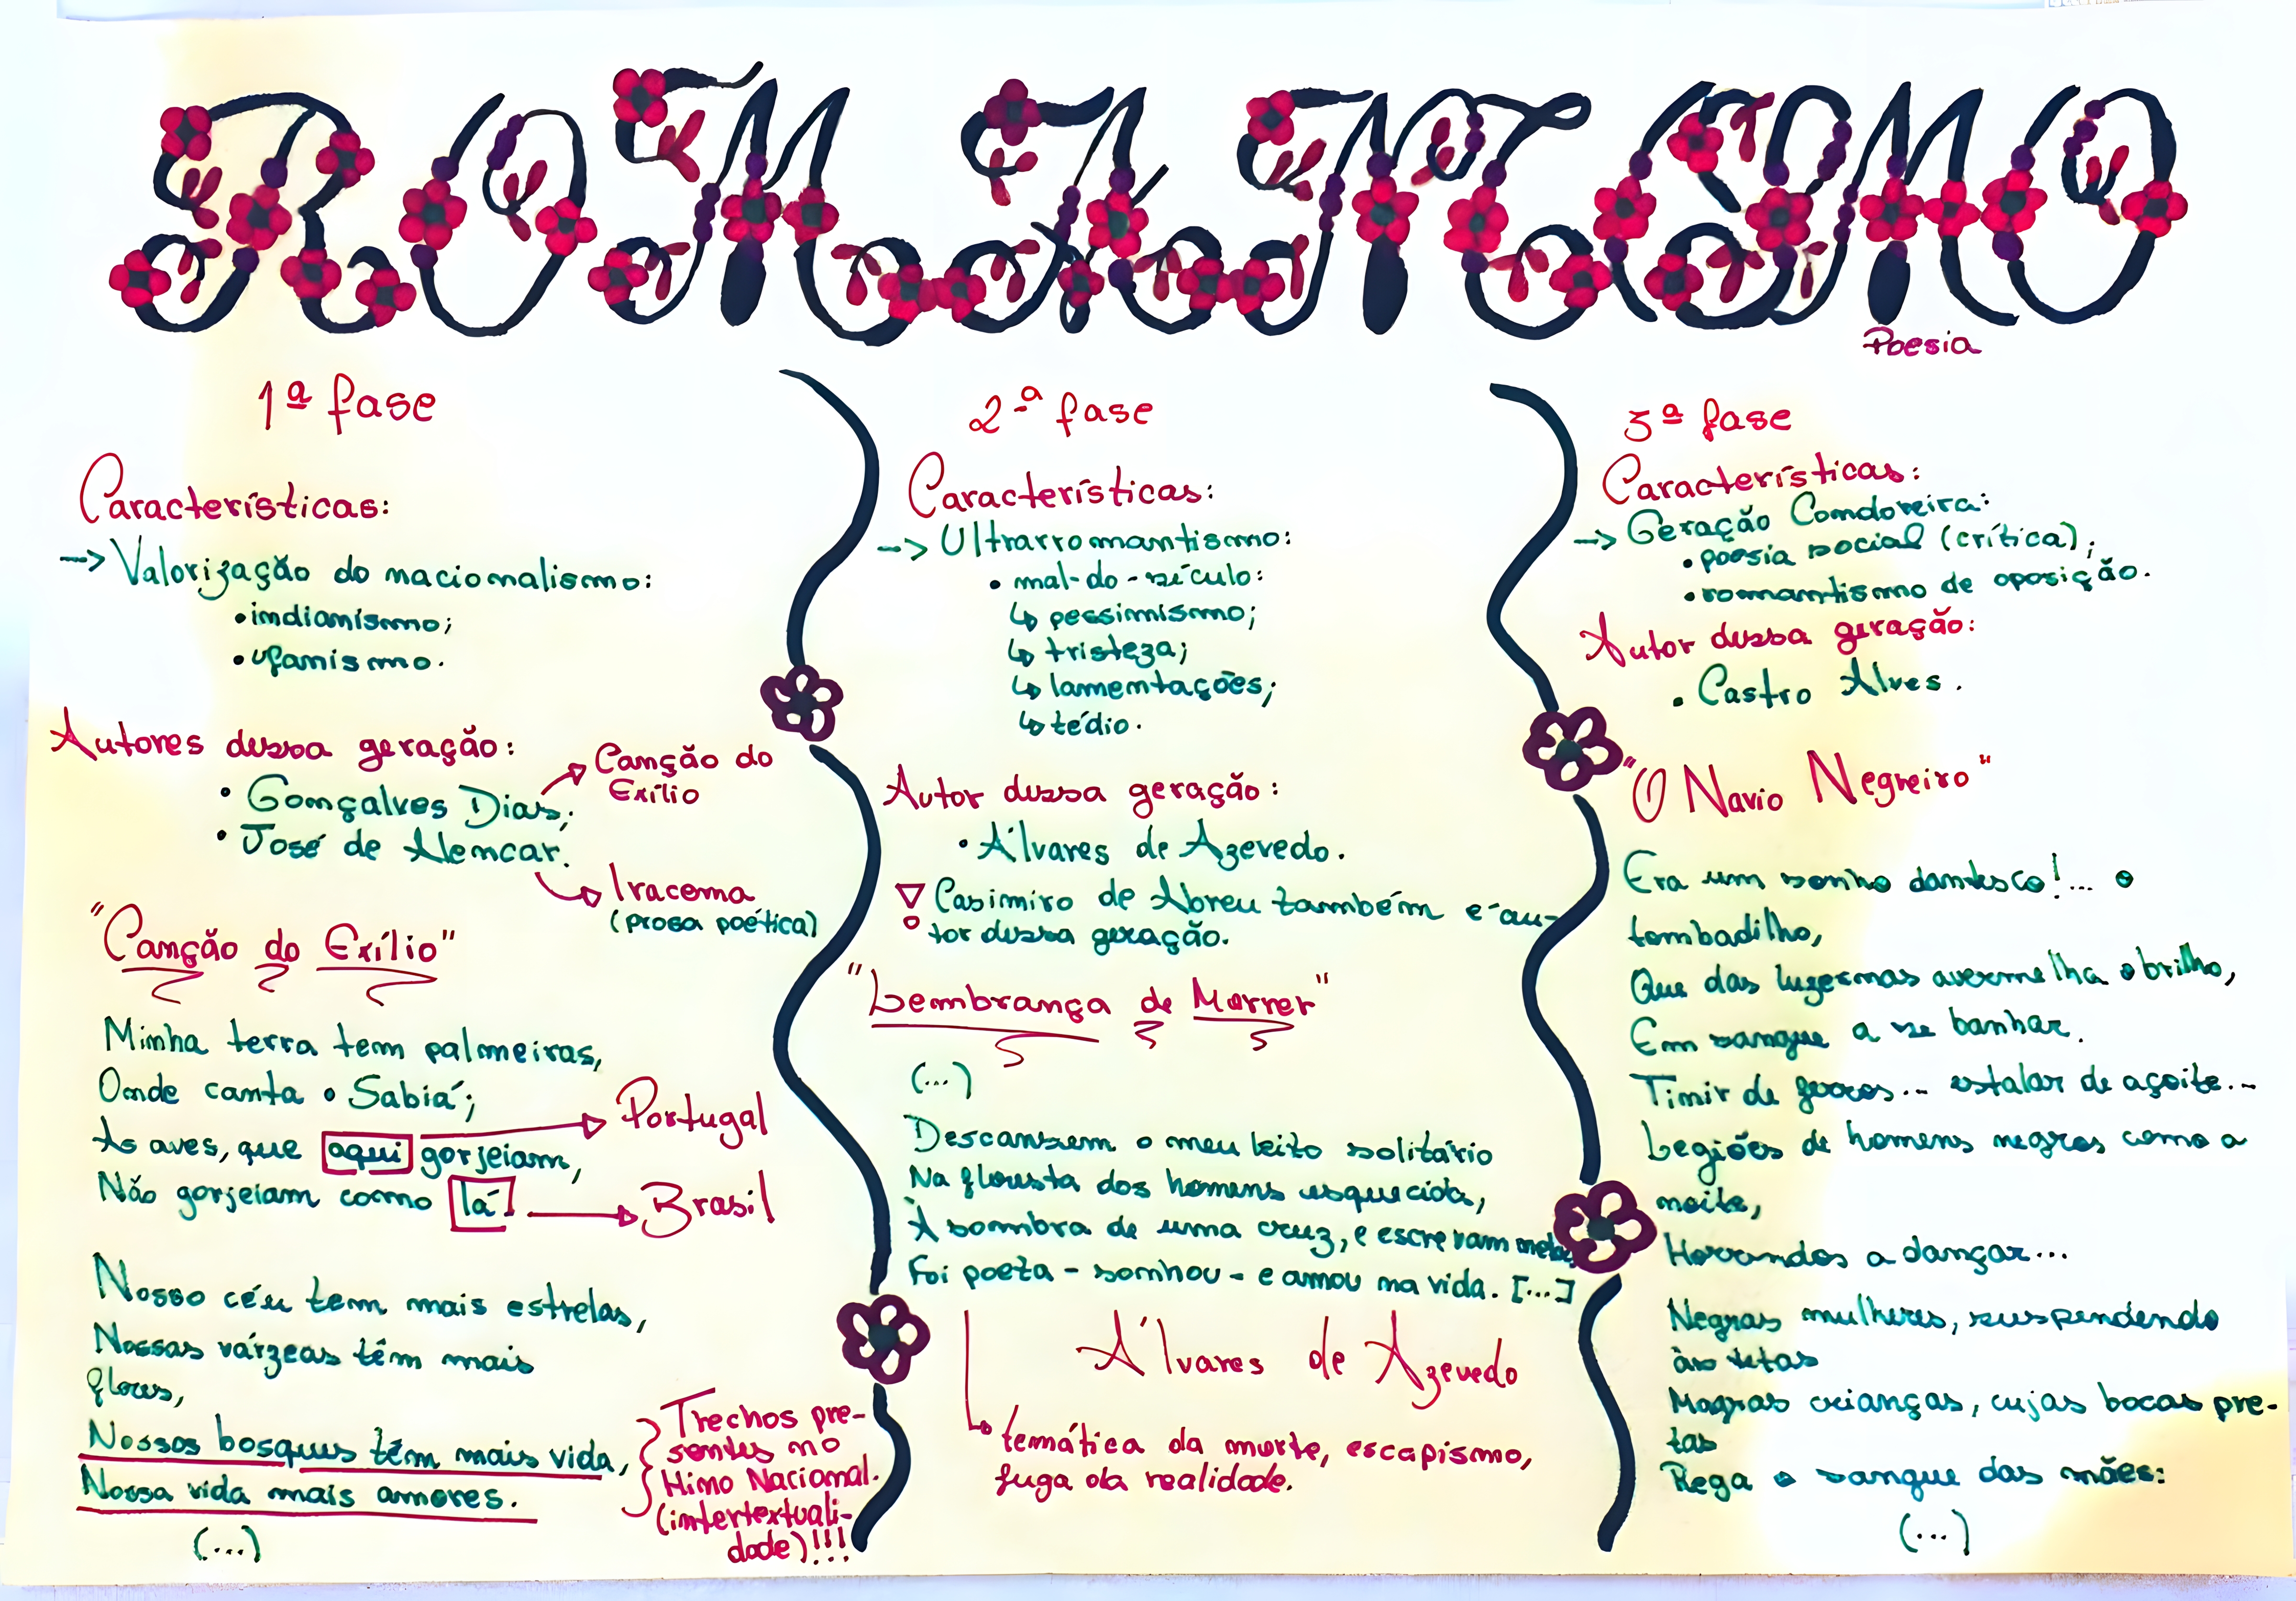 ROMANTISMO
Poesia
1ª fase
Características:
-> Valorização do nacionalismo:
• indianismo;
• ufanismo.
Autores dessa geração:
• Gonçalves Dias;
Canção do
Exílio
• José de Alencar.
Iracema
(prosa poética)
"Canção do Exílio"
Minha terra tem palmeiras,
Onde canta o Sabiá;
As aves, que aqui gorjeiam,
Portugal
Não gorjeiam como lá.
Brasil
Nosso céu tem mais estrelas,
Nossas várzeas têm mais
flores,
Nossos bosques têm mais vida,
Nossa vida mais amores.
(...)
Trechos pre-
sentes no
Hino Nacional.
(intertextuali-
dade)!!!
2ª fase
Características:
-> Ultrarromantismo:
• mal-do-século:
↳ pessimismo;
↳ tristeza;
↳ lamentações;
↳ tédio.
Autor dessa geração:
• Álvares de Azevedo.
Casimiro de Abreu também é au-
tor dessa geração.
"Lembrança de Morrer"
(...)
Descansem o meu leito solitário
Na floresta dos homens esquecida,
À sombra de uma cruz, e escrevam nela
Foi poeta - sonhou - e amou na vida. [...]
Álvares de Azevedo
↳ temática da morte, escapismo,
fuga da realidade.
3ª fase
Características:
-> Geração Condoreira:
• poesia social (crítica);
• romantismo de oposição.
Autor dessa geração:
• Castro Alves.
"O Navio Negreiro"
Era um sonho dantesco!... o
tombadilho,
Que das luzernas avermelha o brilho,
Em sangue a se banhar.
Tinir de ferros... estalar de açoite...
Legiões de homens negros como a
noite,
Horrendos a dançar...
Negras mulheres, suspendendo
às tetas
Magras crianças, cujas bocas pre-
tas
Rega o sangue das mães:
(...)